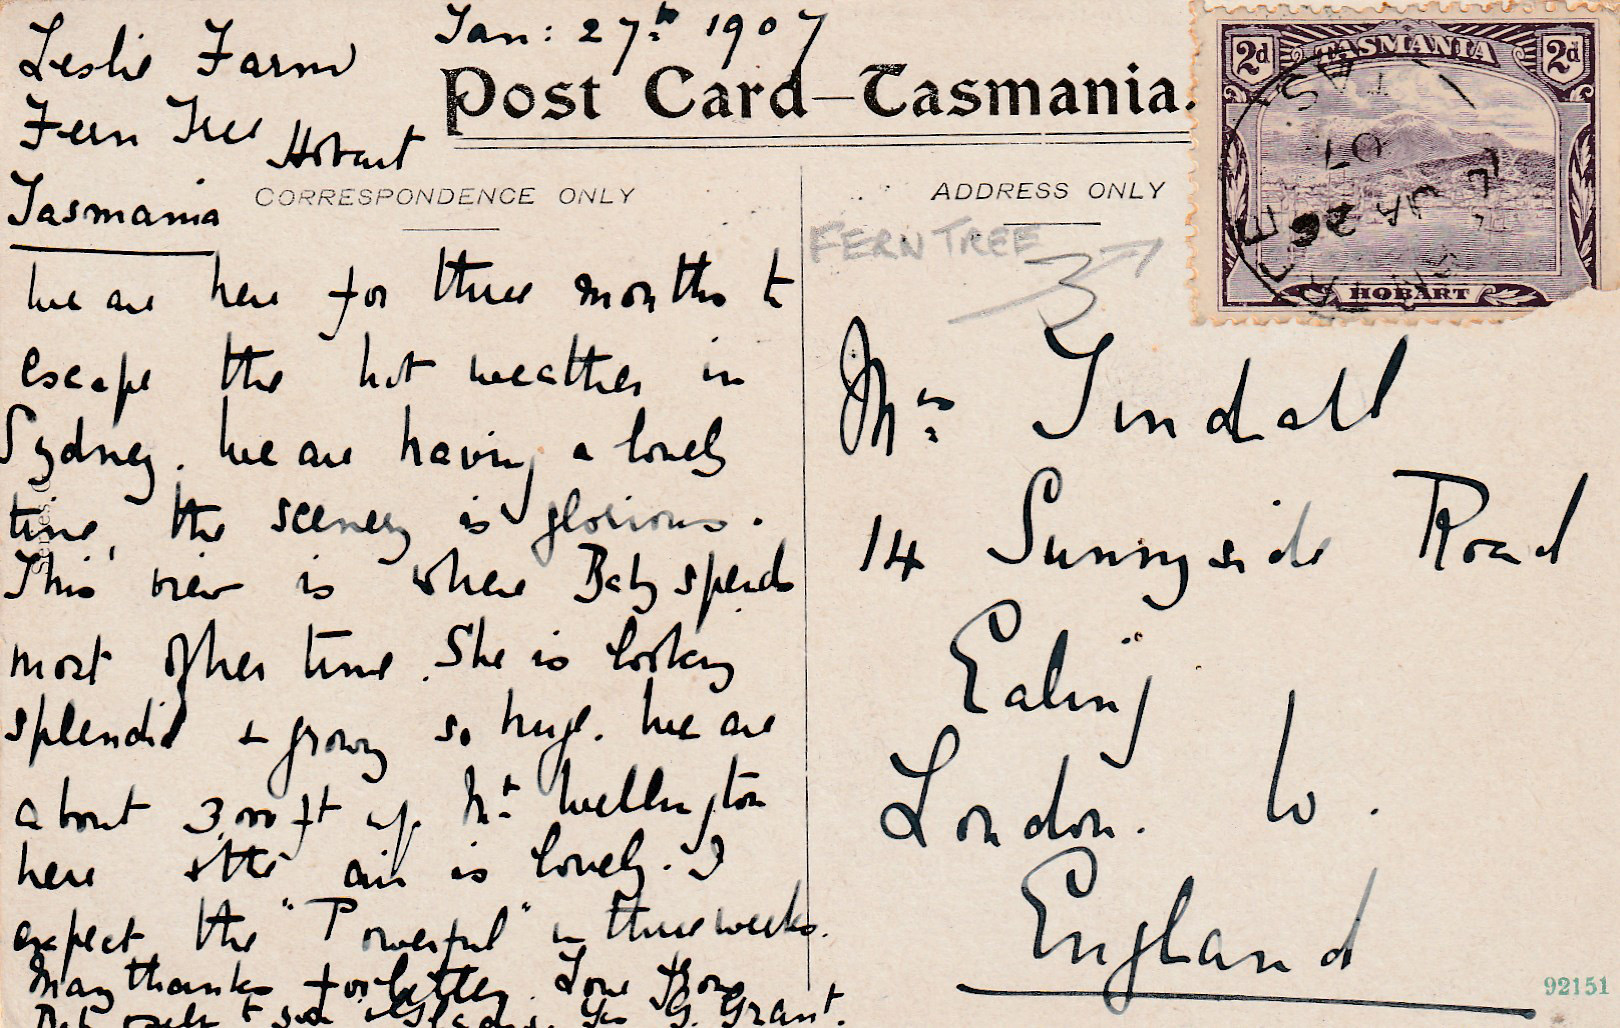 Leslie Farm
Fern Tree Hobart
Tasmania
Jan: 27th 1907
Post Card–Tasmania.
CORRESPONDENCE ONLY
We are here for three months to
escape the hot weather in
Sydney. We are having a lovely
time, the scenery is glorious.
This view is where Baby spends
most of her time. She is looking
splendid + growing so huge. We are
about 3,000 ft up Mt Wellington
here + the air is lovely. I
expect the "Powerful" in three weeks.
Many thanks for letter. Love from
G. Grant.
ADDRESS ONLY
FERN TREE
2d TASMANIA 2d
HOBART
TAS
JA 26
07
Mrs Tindall
14 Sunnyside Road
Ealing
London. W.
England
92151